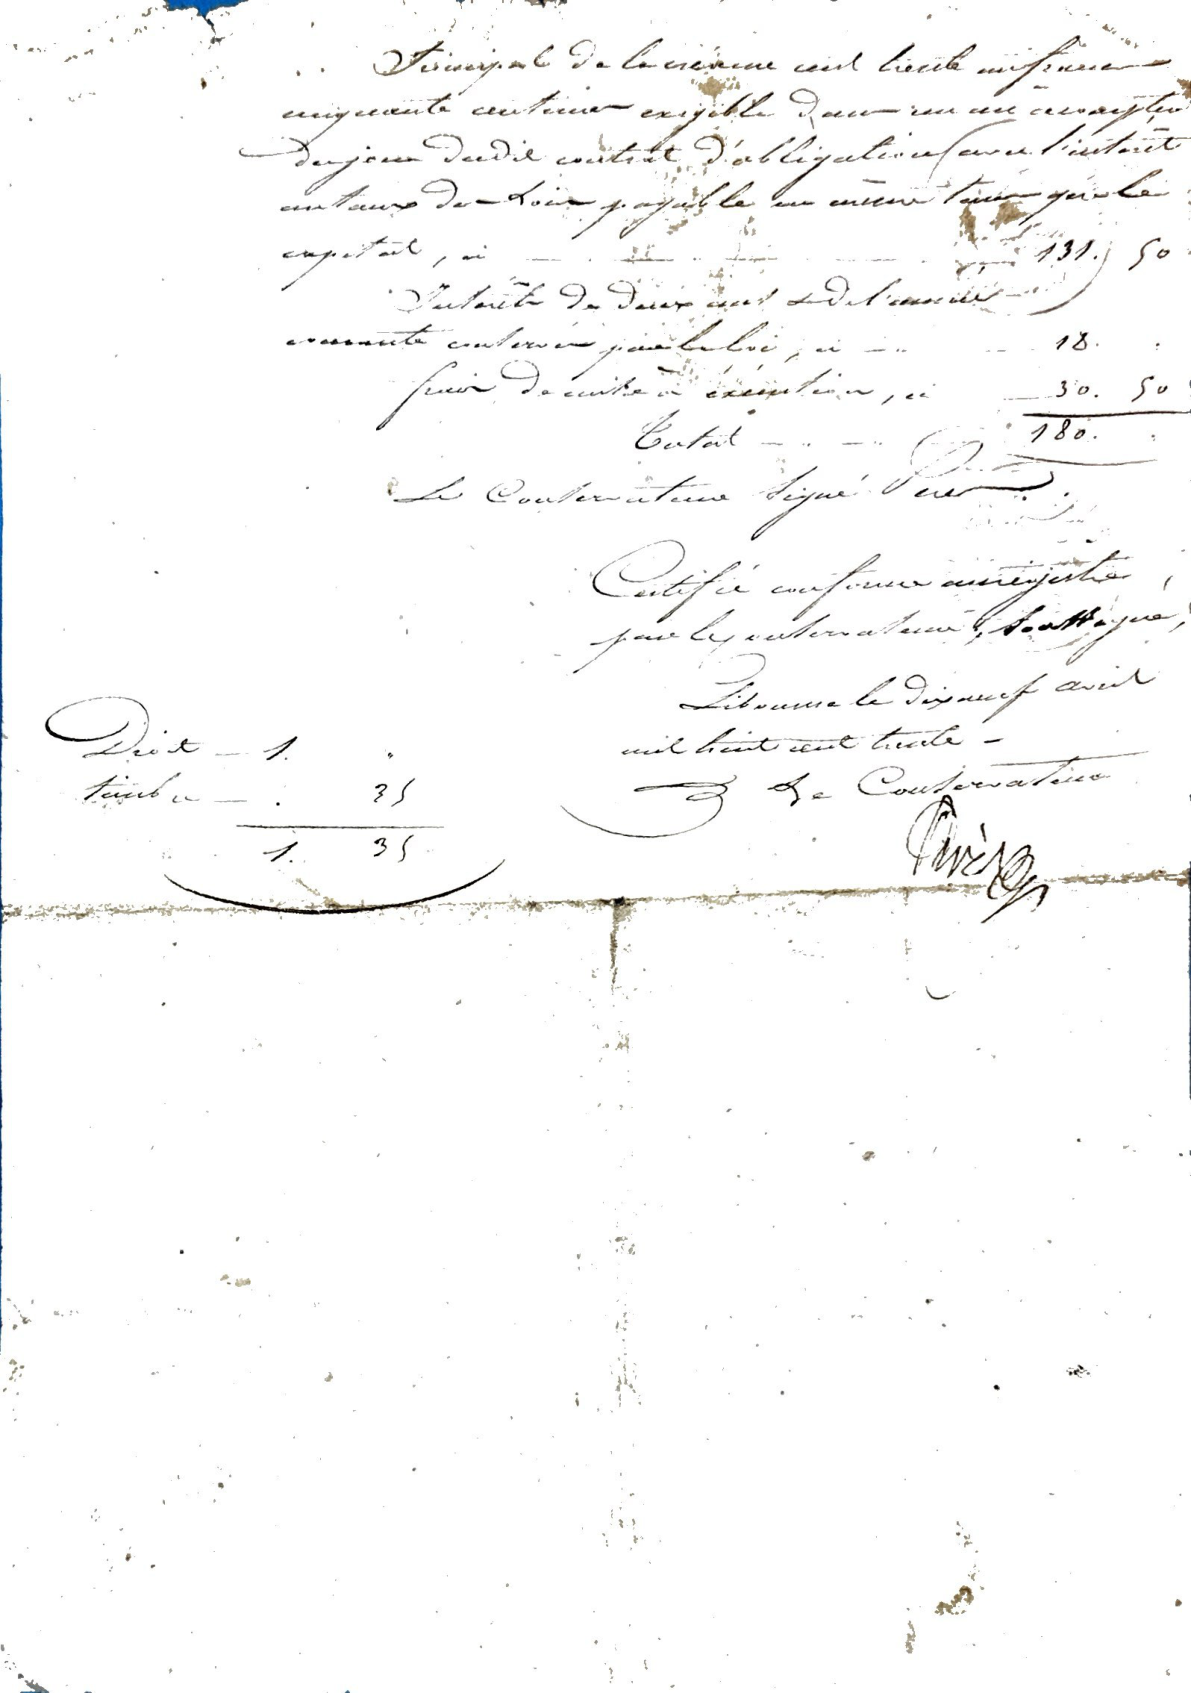 Principal de la créance cent trente un francs
cinquante centimes exigible dans un an à compter
du jour dudit contrat d'obligation (avec l'intérêt
au taux de Loi payable en même tems que le
capital, ci 131.) 50
Intérêts de deux ans & de l'année
courante conservés par la loi, ci 18.
frais de mise à exécution, ci 30. 50
Total 180.
Le Conservateur signé
Certifié conforme au registre
par le conservateur, soussigné,
Libourne le dixneuf avril
mil huit cent trente
Droit 1. "
timbre . 35
1. 35
Le Conservateur